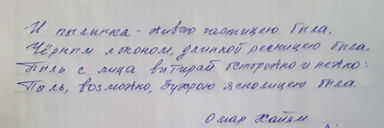 И пылинка - живою частицею была,
Чёрным локоном, длинной ресницею была,
Пыль с лица вытирай осторожно и нежно:
Пыль, возможно, Зухрою яснолицею была.
Омар Хайям